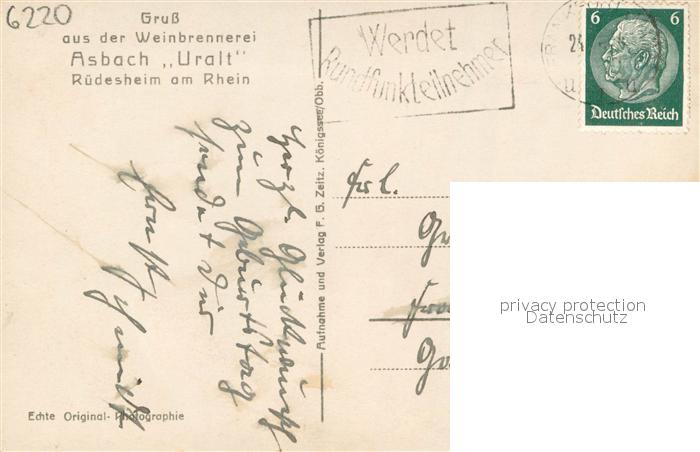 6220
Gruß
aus der Weinbrennerei
Asbach „Uralt"
Rüdesheim am Rhein
Werdet
Rundfunkteilnehmer
24
6 6
Deutsches Reich
Herzl. Glückwunsch
zum Geburtstag
sendet Dir
Ernst
Aufnahme und Verlag F. G. Zeitz, Königssee/Obb.
Frl.
privacy protection
Datenschutz
Echte Original-Photographie